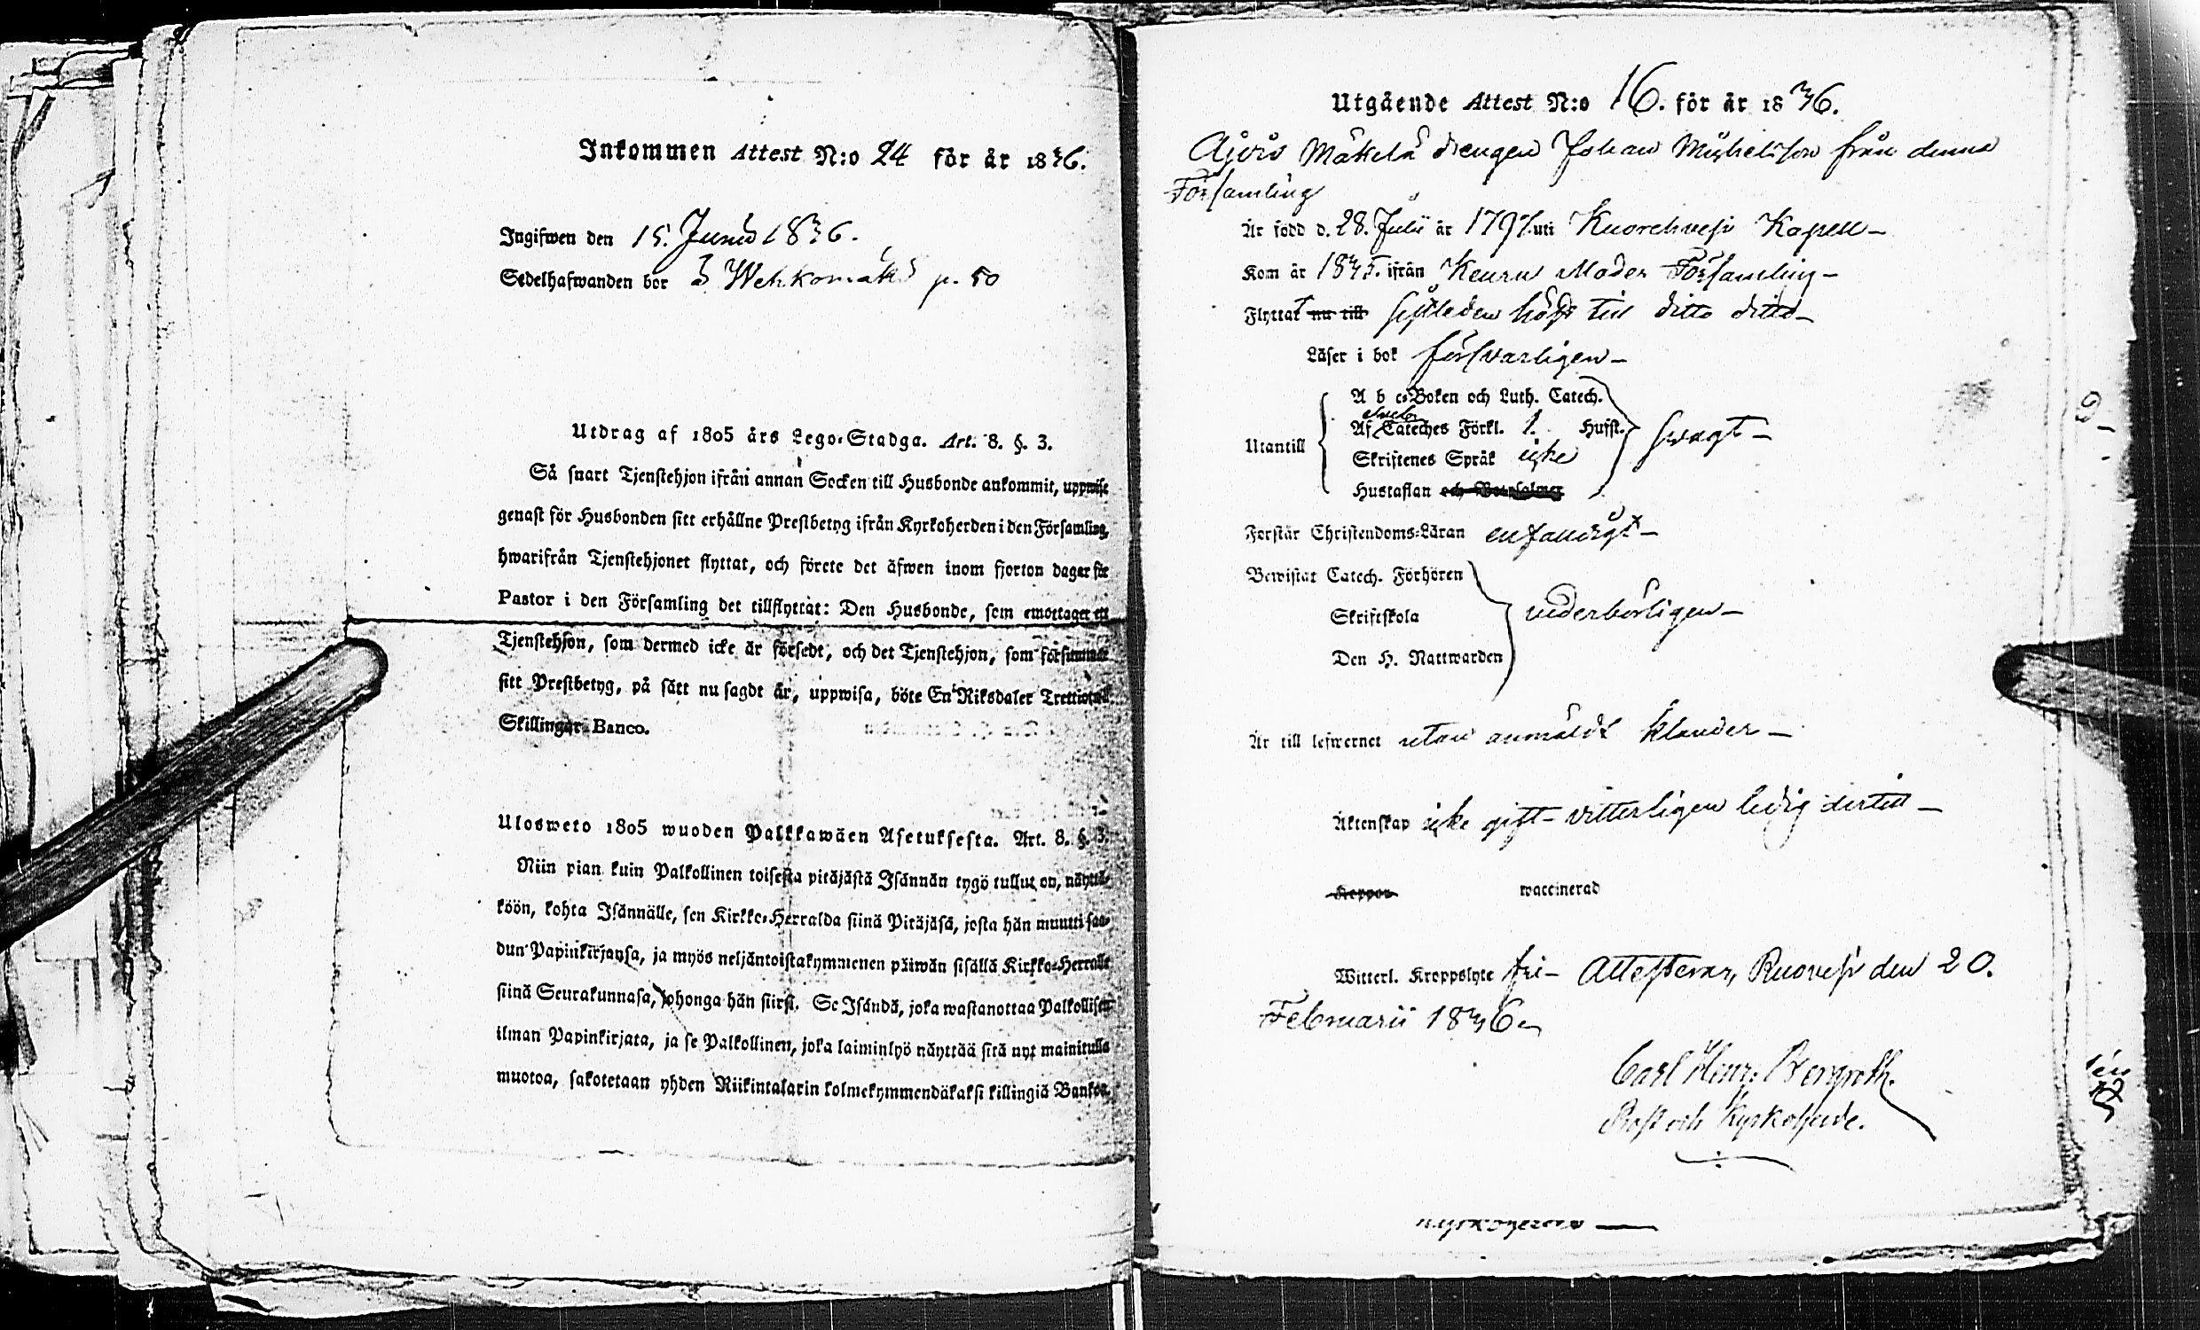 Inkommen Attest N:o 24 för år 1836.
Ingifwen den 15. Junii 1836.
Sedelhafwanden bor å Wehkomäki p. 50
Utdrag af 1805 års Lego-Stadga. Art. 8. §. 3.
Så snart Tjenstehjon ifrån annan Socken till Husbonde ankommit, uppwise
genast för Husbonden sitt erhållne Prestbetyg ifrån Kyrkoherden i den Församling,
hwarifrån Tjenstehjonet flyttat, och förete det äfwen inom fjorton dagar för
Pastor i den Församling det tillflyttat: Den Husbonde, som emottager ett
Tjenstehjon, som dermed icke är försedt, och det Tjenstehjon, som försummar
sitt Prestbetyg, på sätt nu sagdt är, uppwisa, böte En Riksdaler Trettiotwå
Skillingar Banco.
Ulosweto 1805 wuoden Palkkawäen Asetuksesta. Art. 8. §. 3.
Niin pian kuin Palkollinen toisesta pitäjästä Isännän tygö tullut on, näyttä-
köön, kohta Isännälle, sen Kirkko-Herralda siinä Pitäjäsä, josta hän muutti saa-
dun Papinkirjansa, ja myös neljäntoistakymmenen päiwän sisällä Kirkko-Herralle
siinä Seurakunnasa, johonga hän siirsi. Se Isändä, joka wastanottaa Palkollisen
ilman Papinkirjata, ja se Palkollinen, joka laiminlyö näyttää sitä nyt mainitulla
muotoa, sakotetaan yhden Riikintalarin kolmekymmendäkaksi killingiä Bankos.
Utgående Attest N:o 16. för år 1836.
Mäkelä drengen Johan Michelsson från denna
Församling
Är född d. 28. Julii år 1797. uti Kuorehvesi Kapell-
Kom år ifrån Keuru Moder Församling-
Flyttat nu till sistleden höst till ditto ditto-
Läser i bok försvarligen-
A b c-Boken och Luth. Catech.
Utantill Af Cateches Förkl. 1. Hufst. swagt-
Skriftenes Språk icke
Hustaflan och Botpsalmer
Forstår Christendoms-Läran enfaldigt-
Bewistat Catech. Förhören
Skriftskola vederbörligen-
Den H. Nattwarden
Är till lefwernet utan anmäldt klander-
Äktenskap icke gift- vitterligen ledig dertill-
Koppor waccinerad
Witterl. Kroppslyte fri- Attesterar, Ruovesi den 20.
Februarii 1836.
Carl Henr. Bergroth.
Prost och Kyrkoherde.
Kyrkoherde